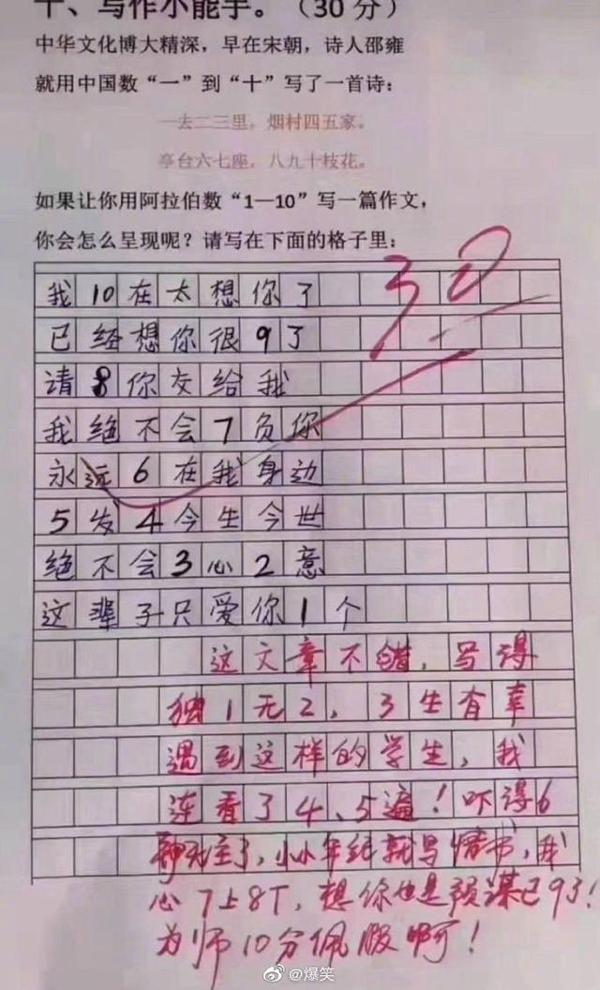 十、写作小能手。（30分）
中华文化博大精深，早在宋朝，诗人邵雍
就用中国数“一”到“十”写了一首诗：
一去二三里，烟村四五家。
亭台六七座，八九十枝花。
如果让你用阿拉伯数“1—10”写一篇作文，
你会怎么呈现呢？请写在下面的格子里：
30
我10在太想你了
已经想你很9了
请8你交给我
我绝不会7负你
永远6在我身边
5发4今生今世
绝不会3心2意
这辈子只爱你1个
这文章不错，写得
独1无2，3生有幸
遇到这样的学生，我
连看了4、5遍！吓得6
神无主了，小小年纪就写情书，我
心7上8下，想你也是预谋已9了！
为师10分佩服啊！
@爆笑